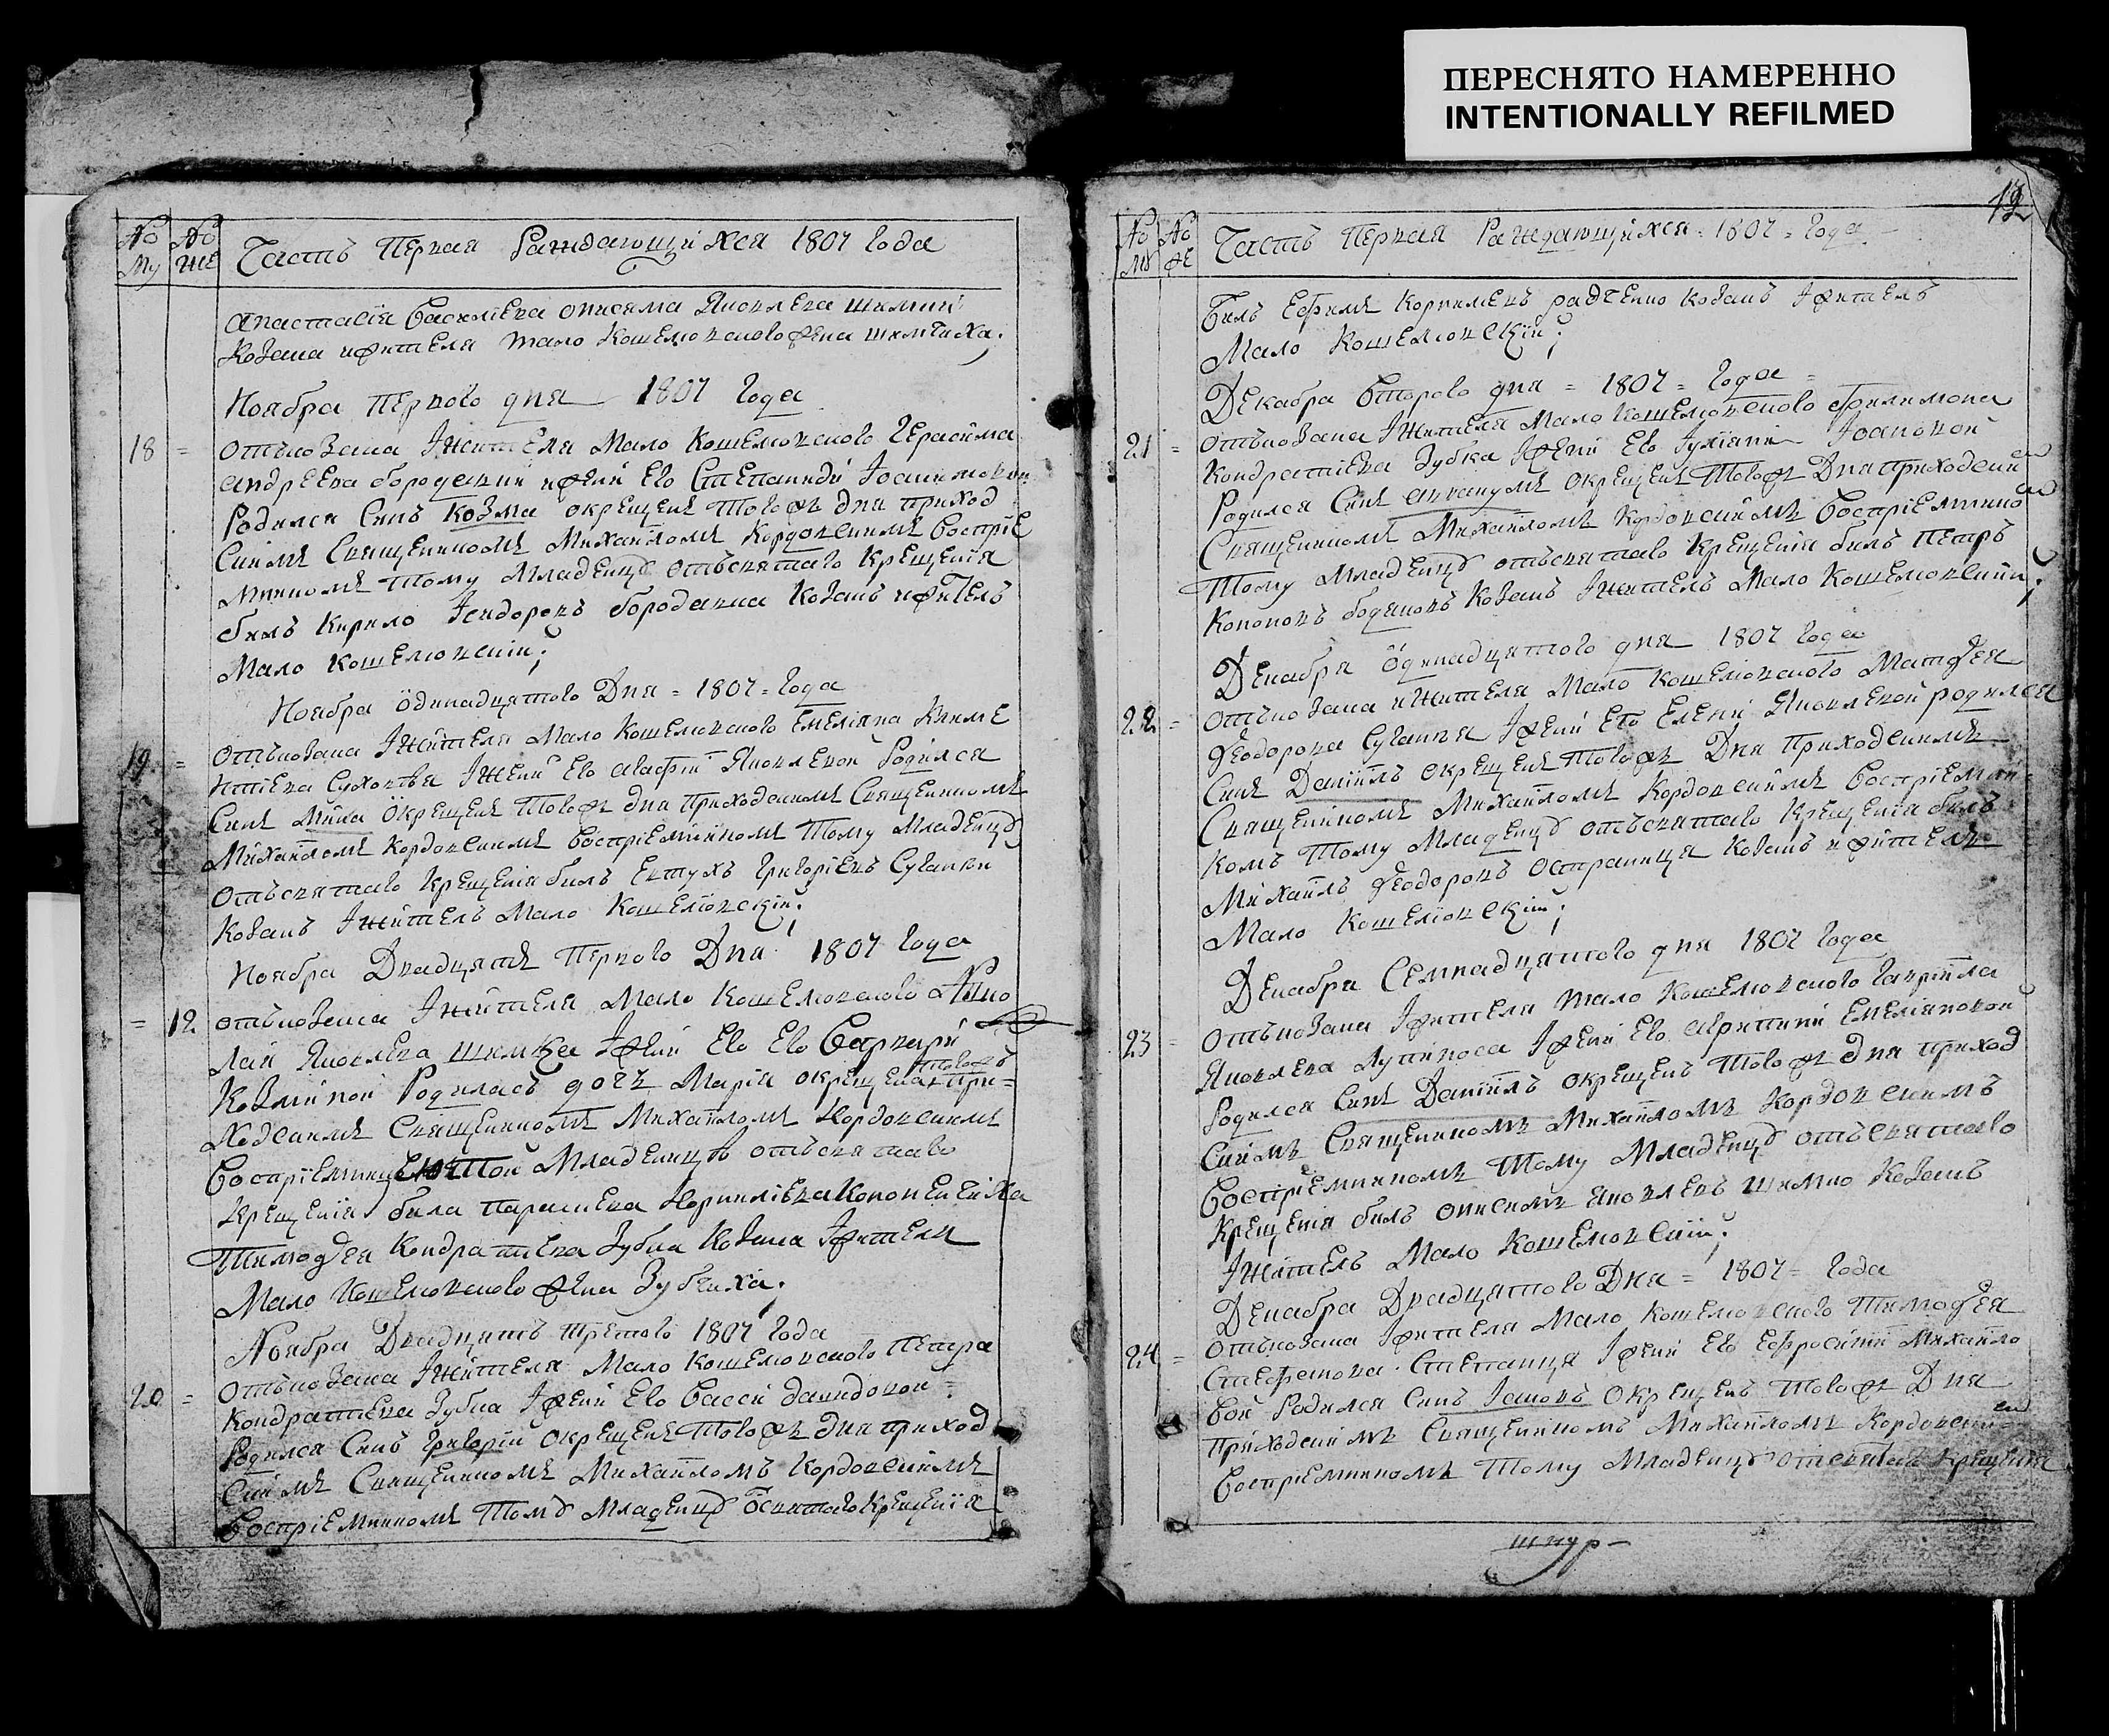 ПЕРЕСНЯТО НАМЕРЕННО
INTENTIONALLY REFILMED
№ му
№ же
Часть Первая Раждающихся 1807 года
Анастасія Василіева Онисима Яковлева шимки
козака ижителя мало Кошелювского жена шимчиха;
Ноября Первого дня 1807 года
18 = Отъкозака Іжителя Мало Кошелювского Герасима
Андреева бородавки ижени Его Степаниди Іоакимовои
Родился Синъ Козма окрещенъ тогожъ дня приход
скимъ Священникомъ Михаиломъ Кордовскимъ Воспріе
мникомъ тому Младенцу отъсвятаго Крещенія
билъ Кирило Ісидоровъ бородавка Козакъ ижитель
Мало Кошелювскіи;
Ноября одинадцятого Дня = 1807 = года
19 = Отъкозака Іжителя Мало Кошелювского Емеліяна Климе
нтіева Сухонъвя Іжени Его Агафіи Яковлевой Родился
Синъ Мина окрещенъ тогожъ дня Приходскимъ Священникомъ
Михаиломъ Кордовскимъ Воспріемникомъ тому Младенцу
отъсвятаго Крещенія билъ Евтухъ Григоріевъ Суганяк
Козакъ Іжитель Мало Кошелювскіи;
Ноября Двадцять Первого Дня 1807 года
= 12 отъкозака Іжителя Мало Кошелювского Нико
лая Яковлева шимка Іжени Его Его Варвари
Козминой Родилась дочь Марія окрещена тогожъ при=
ходскимъ Священникомъ Михаиломъ Кордовскимъ
Воспріемницею той Младенице отъсвятаго
Крещенія била Параскева Корниліева Кононенчиха
Тимофея Кондратиева Зубка Козака Іжителя
Мало Кошелювского жена Зубчиха.
Ноября Двадцять третого 1807 года
20 = Отъкозака Іжителя Мало Кошелювского Петра
Кондратиева Зубка Іжени Его Васси давидовои =
Родился Синъ Григорій окрещенъ тогожъ дня приход
скимъ Священникомъ Михаиломъ Кордовскимъ
Воспріемникомъ тому Младенцу ѿсвятаго Крещенія
12
№ му
№ же
Часть Первая Раждающихся = 1807 = года
билъ Ефимъ Корнилевъ радченко козакъ Іжитель
Мало Кошелювскіи;
Декабра Второго дня = 1807 = года =
21 = Отъкозака Іжителя Мало Кошелювского Филимона
Кондратіева Зубка Іжени Его Іуліянии Іоановой
Родился Синъ Аввакумъ окрещенъ тогожъ Дня приходским
Священникомъ Михаиломъ Кордовскимъ Воспріемником
Тому Младенцу отъсвятаго Крещенія билъ Петръ
Кононовъ бодяковъ Козакъ Іжитель Мало Кошелювскии;
Декабря одинадцятого дня 1807 года
22 = Отъкозака иЖителя Мало Кошелювского Матфея
Феодорова Суганяя Іжени Его Елени Яковлевой родился
Синъ Даніилъ окрещенъ тогожъ Дня Приходскимъ
Священникомъ Михаиломъ Кордовскимъ Воспріемни=
комъ тому Младенцу отъсвятаго Крещенія билъ
Михаилъ Феодоровъ Остраница Козакъ ижитель
Мало Кошелювскіи;
Декабря Семнадцятого дня 1807 года
23 = Отъкозака Іжителя мало Кошелювского Гавриила
Яковлева Лупіноса Іжени Его Агрипини Емеліяновой
Родился Синъ Даніилъ окрещенъ тогожъ дня приход
скимъ Священникомъ Михаиломъ Кордовскимъ
Воспріемникомъ тому Младенцу отъсвятаго
Крещенія билъ Онисимъ Яковлевъ шимко Козакъ
Іжитель Мало Кошелювскіи;
Декабря Двадцятого Дня = 1807 = года
24 = Отъкозака Іжителя Мало Кошелювского Тимофея
Стефанова Степанця Іжени Его Ефросинии Михайло
вой Родился Синъ Іаковъ окрещенъ тогожъ Дня
Приходскимъ Священникомъ Михаиломъ Кордовским
Воспріемникомъ тому Младенцу отсвятаго Крещенія
шнур